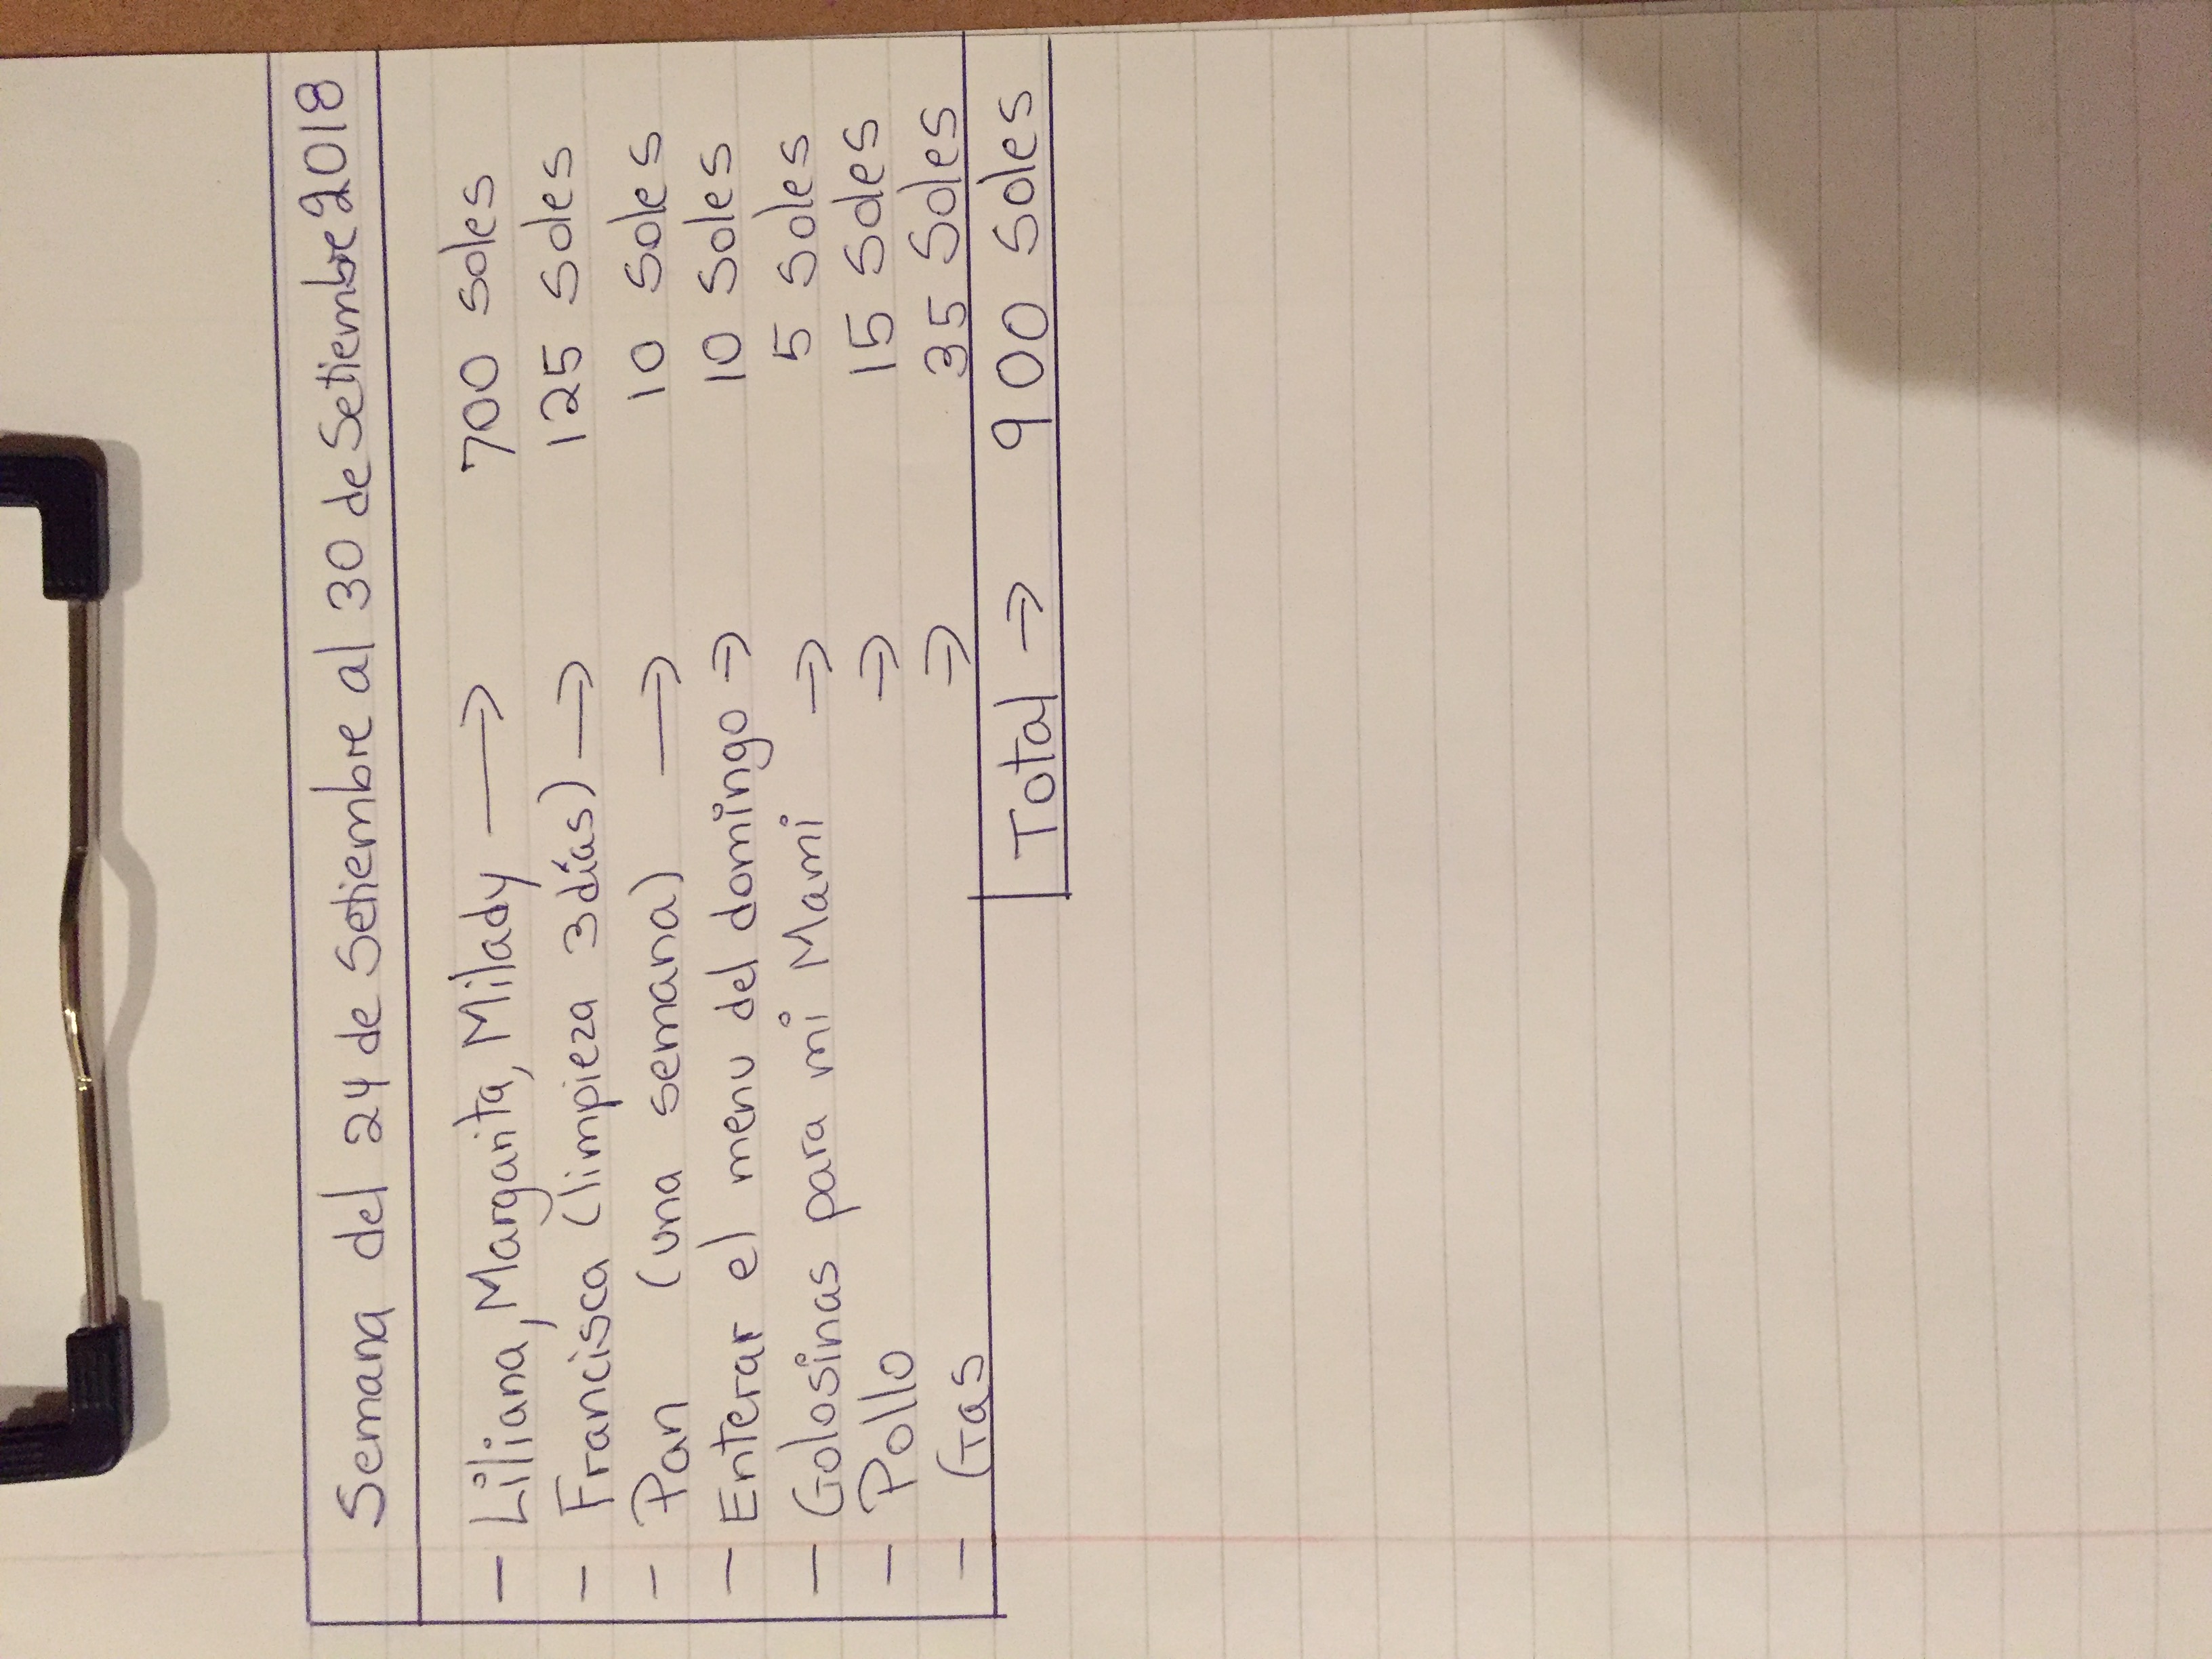 Semana del 24 de Setiembre al 30 de Setiembre 2018
- Liliana, Margarita, Milady → 700 soles
- Francisca (limpieza 3 días) → 125 soles
- Pan (una semana) → 10 soles
- Enterar el menu del domingo → 10 soles
- Golosinas para mi Mami → 5 soles
- Pollo → 15 soles
- Gas → 35 soles
Total → 900 soles